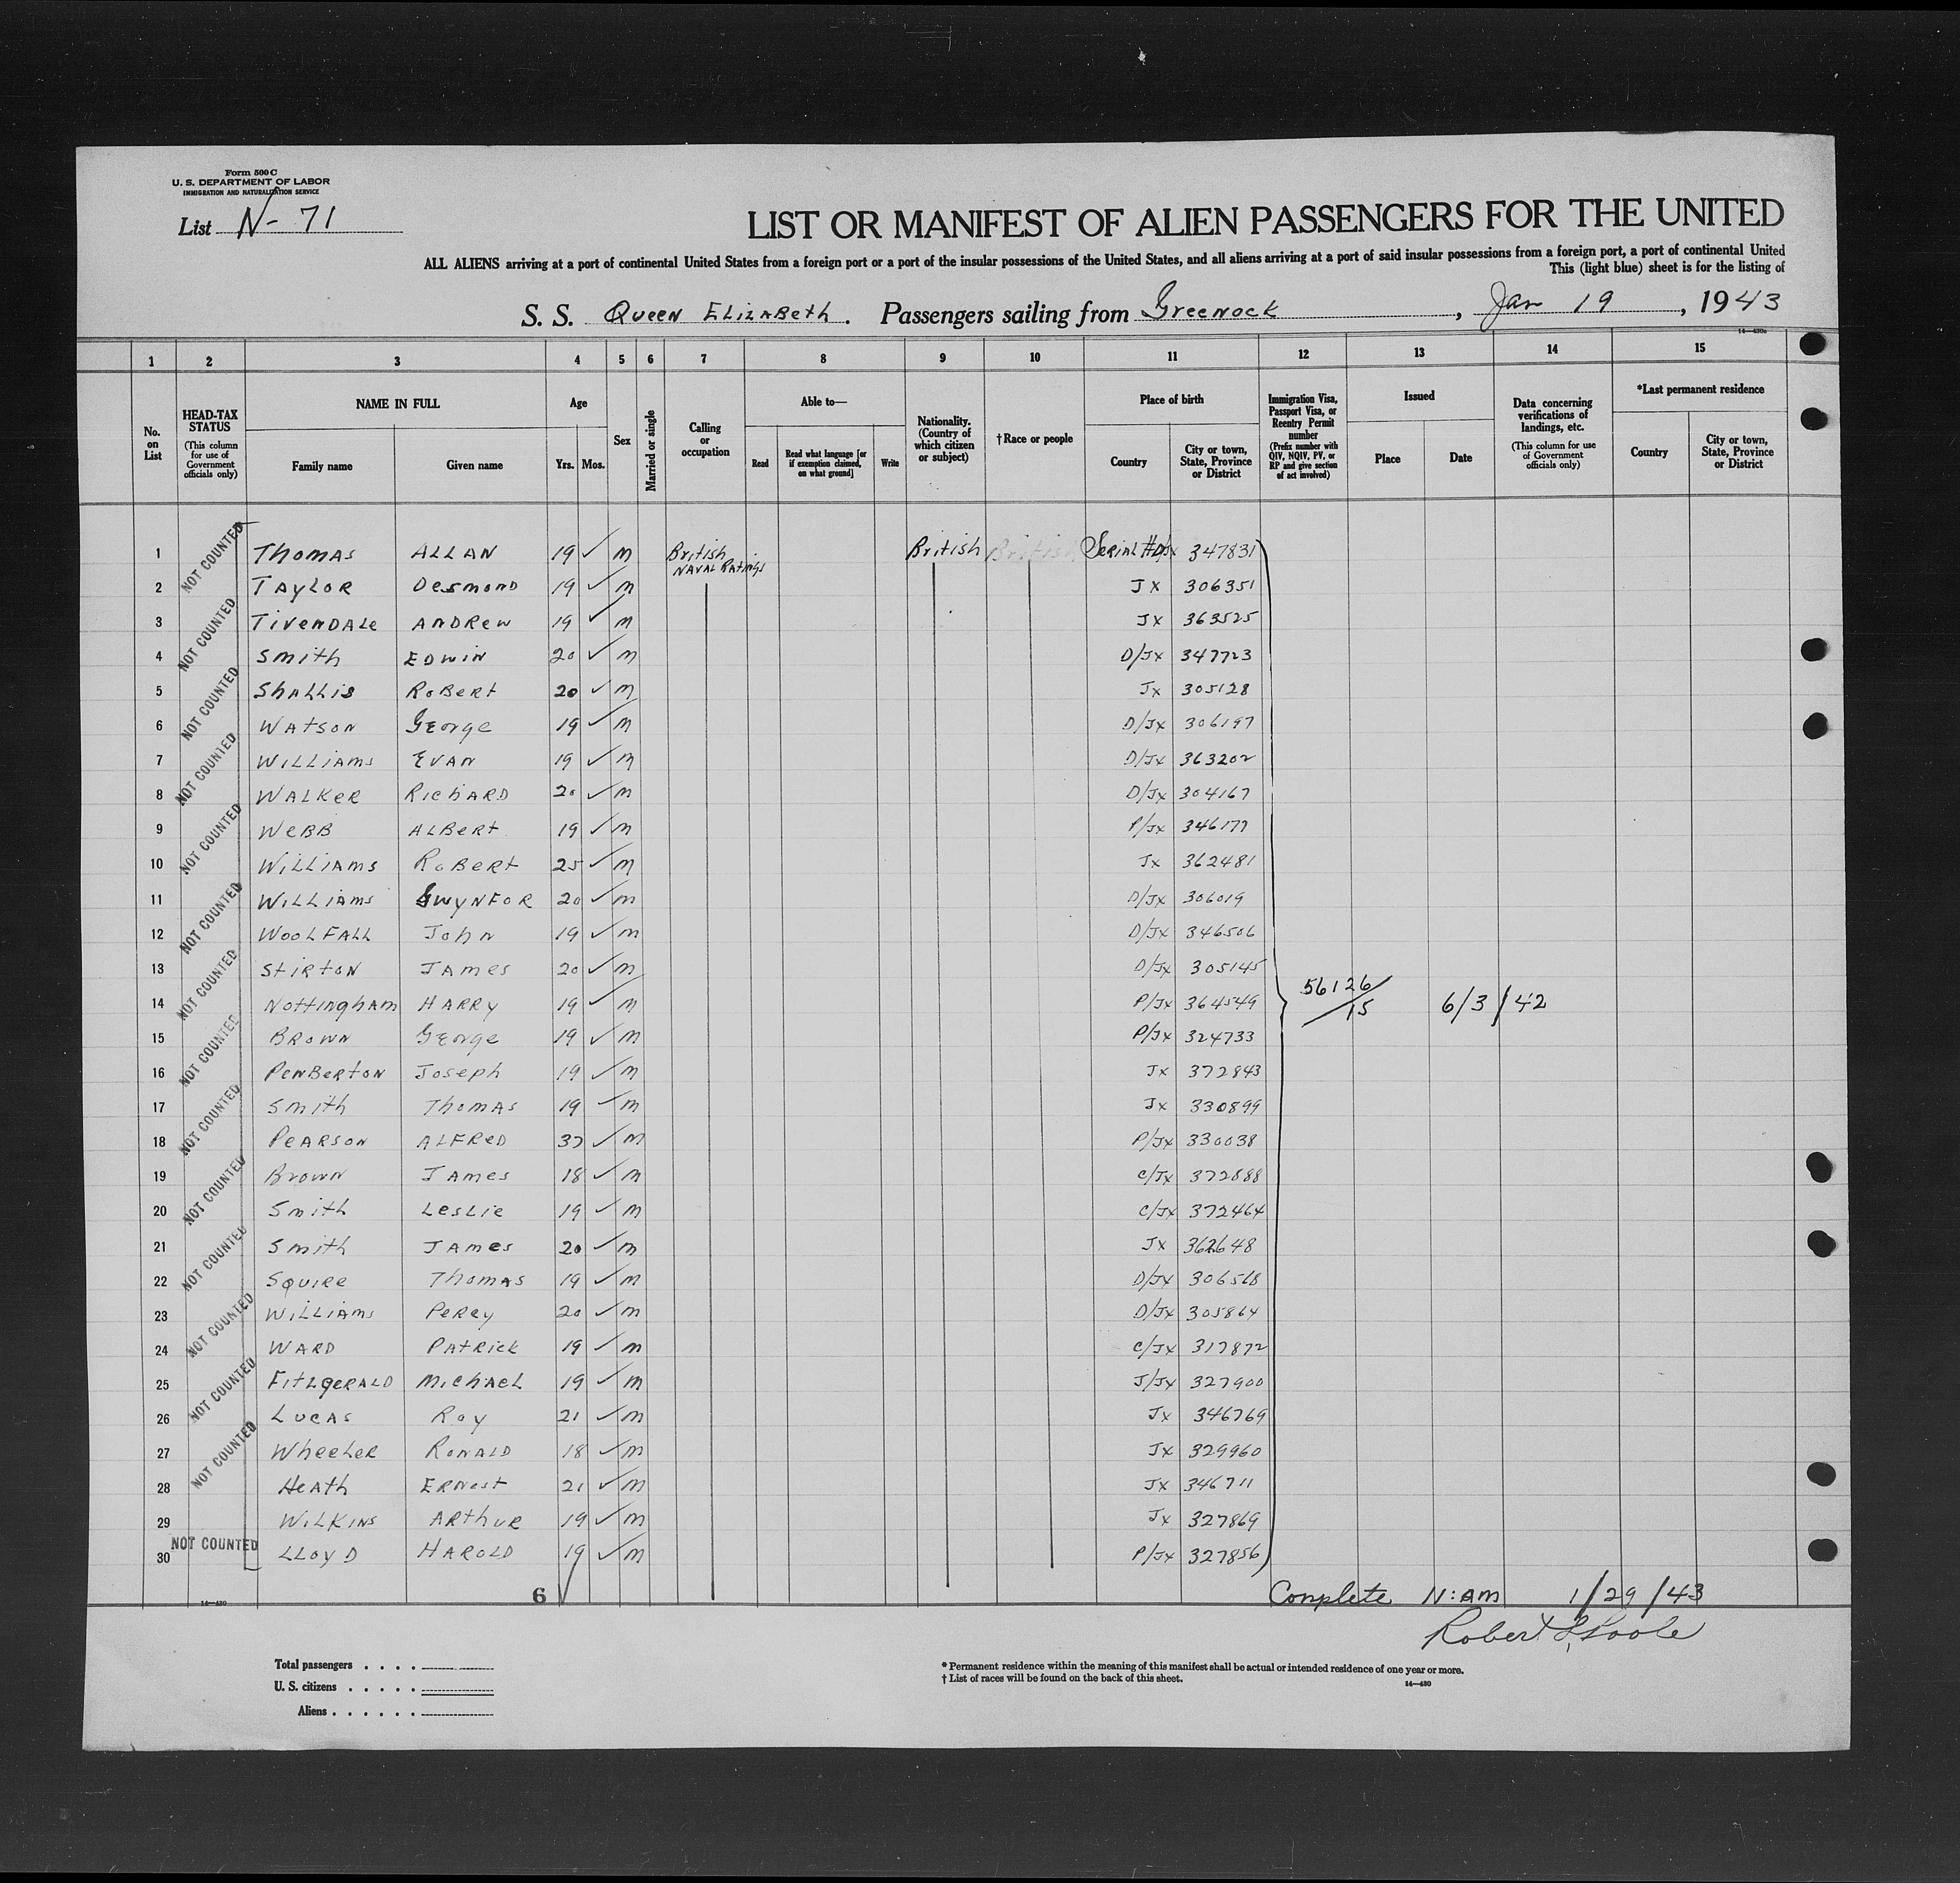 Form 500 C
U. S. DEPARTMENT OF LABOR
IMMIGRATION AND NATURALIZATION SERVICE
List N- 71
LIST OR MANIFEST OF ALIEN PASSENGERS FOR THE UNITED
ALL ALIENS arriving at a port of continental United States from a foreign port or a port of the insular possessions of the United States, and all aliens arriving at a port of said insular possessions from a foreign port, a port of continental United
This (light blue) sheet is for the listing of
S. S. Queen Elizabeth. Passengers sailing from Greenock, Jan 19, 1943
14—430a
1 2 3 4 5 6 7 8 9 10 11 12 13 14 15
No. on List
HEAD-TAX STATUS (This column for use of Government officials only)
NAME IN FULL
Family name Given name
Age
Yrs. Mos.
Sex
Married or single
Calling or occupation
Able to—
Read Read what language [or if exemption claimed, on what ground] Write
Nationality. (Country of which citizen or subject)
†Race or people
Place of birth
Country City or town, State, Province or District
Immigration Visa, Passport Visa, or Reentry Permit number (Prefix number with QIV, NQIV, PV, or RP and give section of act involved)
Issued
Place Date
Data concerning verifications of landings, etc. (This column for use of Government officials only)
*Last permanent residence
Country City or town, State, Province or District
1 NOT COUNTED Thomas Allan 19 ✓ m British Naval Ratings British British Serial # D/Jx 347831
2 Taylor Desmond 19 ✓ m Jx 306351
3 NOT COUNTED Tivendale Andrew 19 ✓ m Jx 363525
4 Smith Edwin 20 ✓ m D/Jx 347723
5 NOT COUNTED Shallis Robert 20 ✓ m Jx 305128
6 Watson George 19 ✓ m D/Jx 306197
7 NOT COUNTED Williams Evan 19 ✓ m D/Jx 363202
8 Walker Richard 20 ✓ m D/Jx 304167
9 NOT COUNTED Webb Albert 19 ✓ m P/Jx 346177
10 Williams Robert 25 ✓ m Jx 362481
11 NOT COUNTED Williams Gwynfor 20 ✓ m D/Jx 306019
12 Woolfall John 19 ✓ m D/Jx 346506
13 NOT COUNTED Stirton James 20 ✓ m D/Jx 305145
14 Nottingham Harry 19 ✓ m P/Jx 364549 56126/15 6/3/42
15 NOT COUNTED Brown George 19 ✓ m P/Jx 324733
16 Penberton Joseph 19 ✓ m Jx 372843
17 NOT COUNTED Smith Thomas 19 ✓ m Jx 330899
18 Pearson Alfred 37 ✓ m P/Jx 330038
19 NOT COUNTED Brown James 18 ✓ m C/Jx 372888
20 Smith Leslie 19 ✓ m C/Jx 372464
21 NOT COUNTED Smith James 20 ✓ m Jx 362648
22 Squire Thomas 19 ✓ m D/Jx 306518
23 NOT COUNTED Williams Percy 20 ✓ m D/Jx 305864
24 Ward Patrick 19 ✓ m C/Jx 317872
25 NOT COUNTED Fitzgerald Michael 19 ✓ m J/Jx 327900
26 Lucas Roy 21 ✓ m Jx 346769
27 NOT COUNTED Wheeler Ronald 18 ✓ m Jx 329960
28 Heath Ernest 21 ✓ m Jx 346711
29 Wilkins Arthur 19 ✓ m Jx 327869
30 NOT COUNTED Lloyd Harold 19 ✓ m P/Jx 327856
14—430 6 Complete N:am 1/29/43
Robert
Total passengers . . . .
U. S. citizens . . . . .
Aliens . . . . . .
* Permanent residence within the meaning of this manifest shall be actual or intended residence of one year or more.
† List of races will be found on the back of this sheet.
14—430